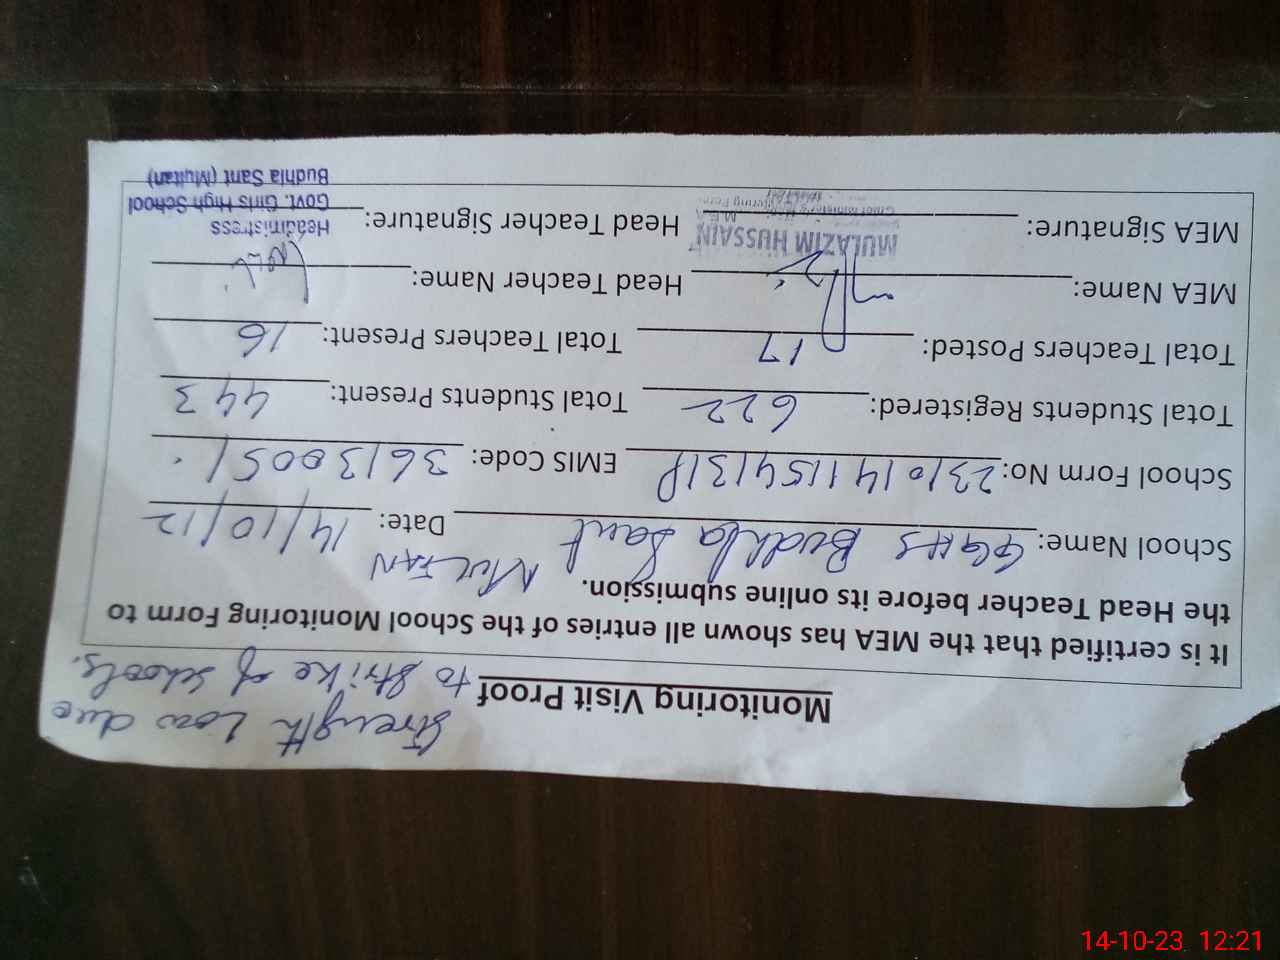 Strength Low due
Monitoring Visit Proof to strike of schools.
It is certified that the MEA has shown all entries of the School Monitoring Form to
the Head Teacher before its online submission.
School Name: GGHS Budhla Sant MULTAN Date: 14/10/12
School Form No: 231014115413 EMIS Code: 36130051
Total Students Registered: 622 Total Students Present: 443
Total Teachers Posted: 17 Total Teachers Present: 16
MEA Name: Head Teacher Name:
MEA Signature: MULAZIM HUSSAIN Head Teacher Signature: Headmistress
MEA
Govt. Girls High School
Budhla Sant (Multan)
14-10-23 12:21